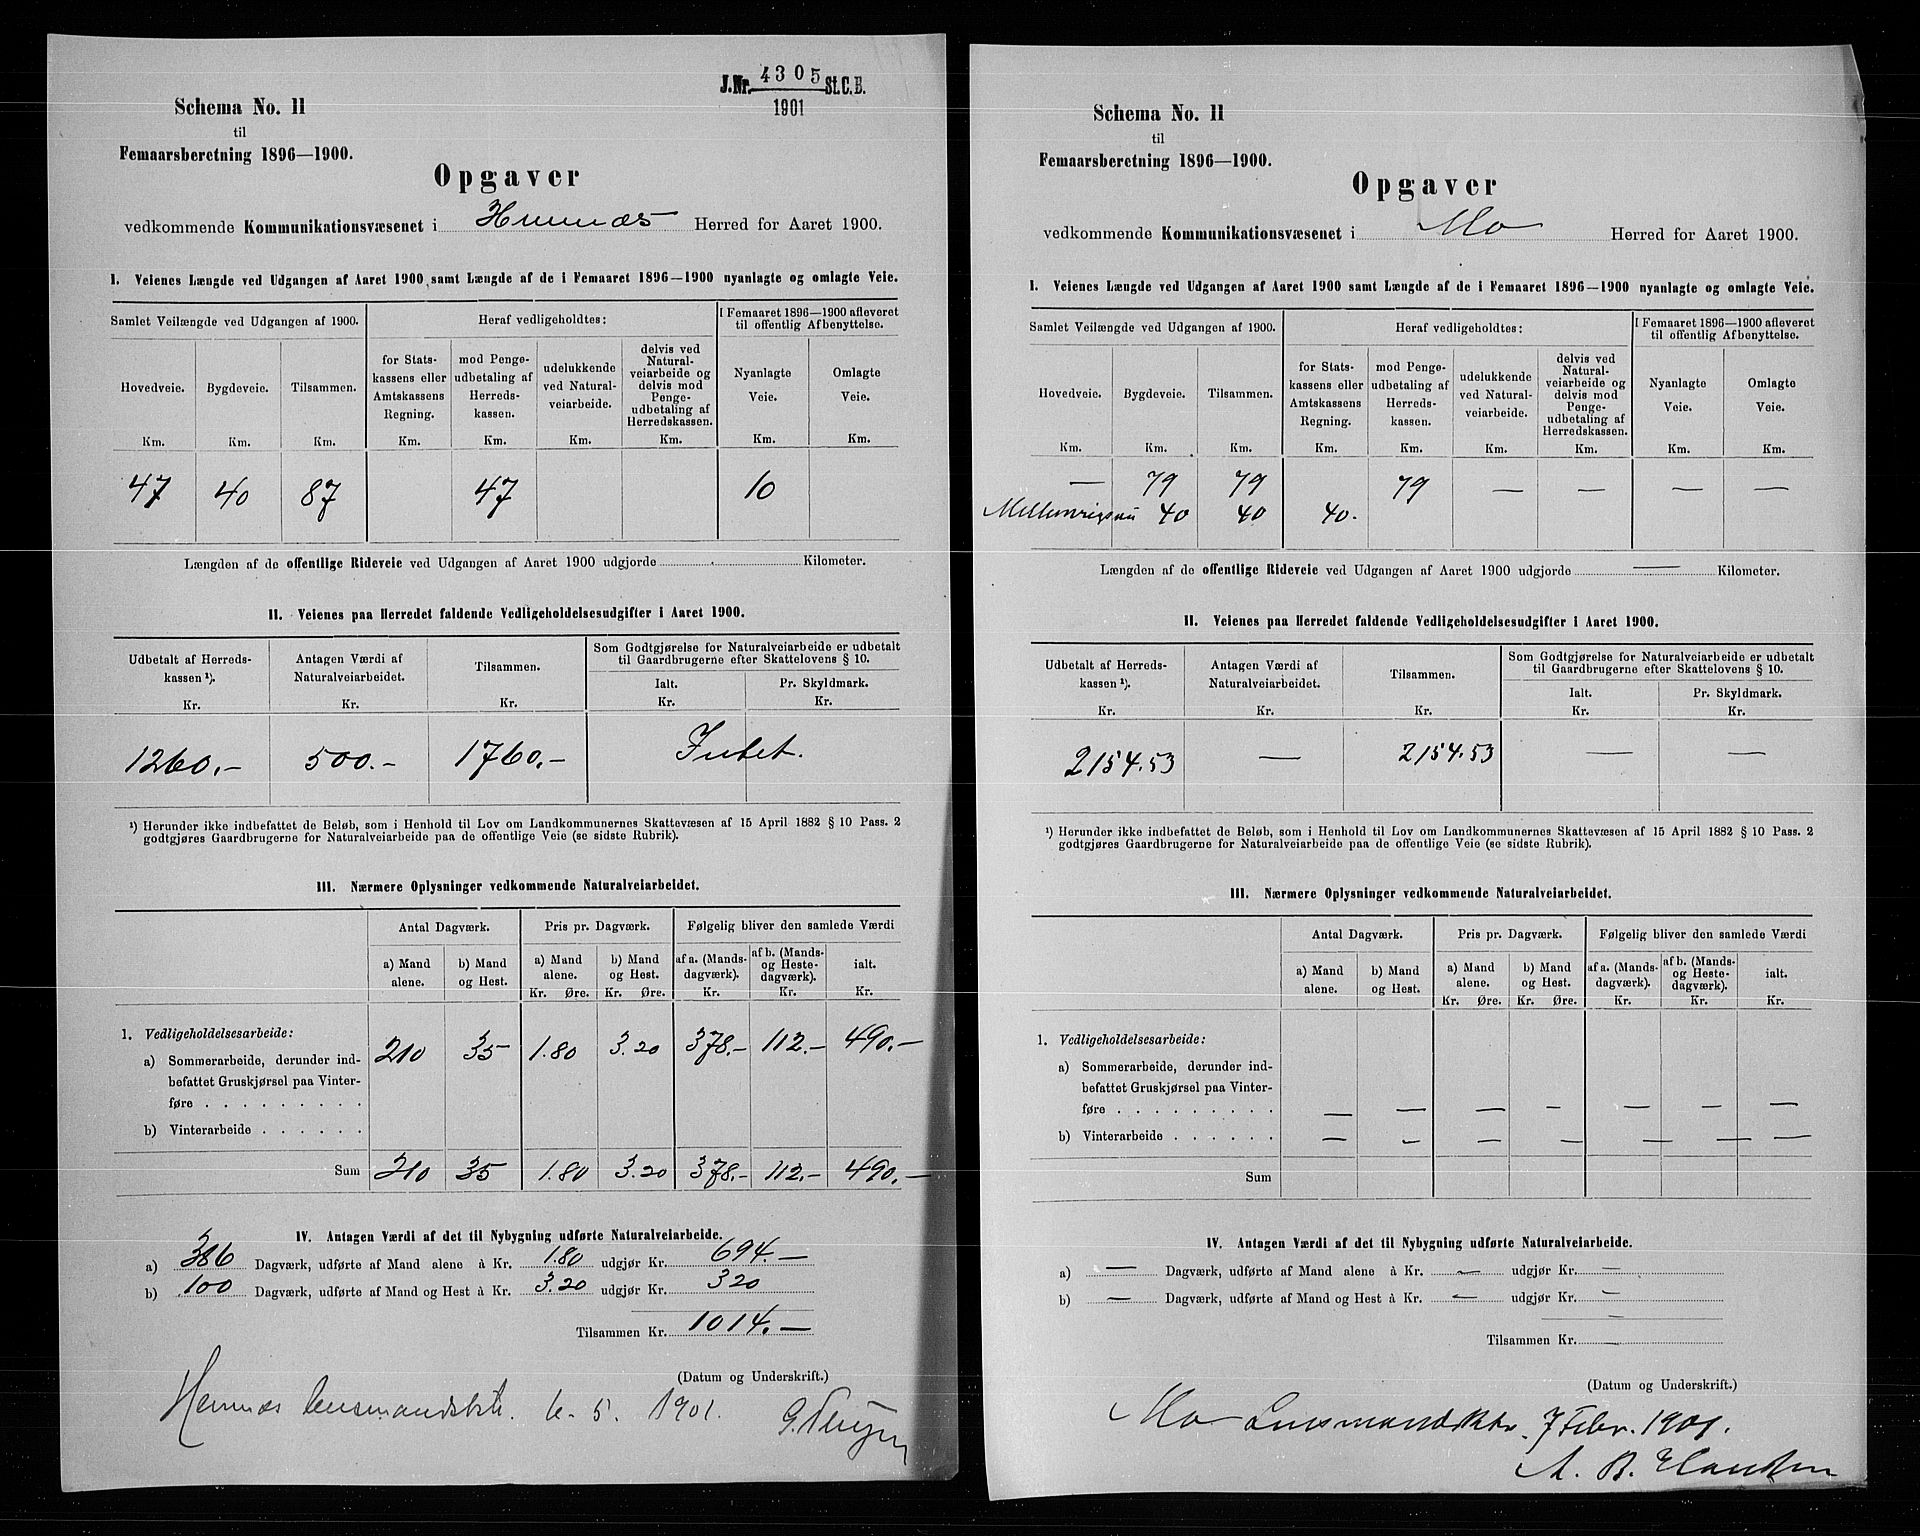 J.Nr. 4305 St.C.B.
1901
Schema No. 11
til
Femaarsberetning 1896—1900.
Opgaver
vedkommende Kommunikationsvæsenet i Hemnæs Herred for Aaret 1900.
I. Veienes Længde ved Udgangen af Aaret 1900 samt Længde af de i Femaaret 1896—1900 nyanlagte og omlagte Veie.
Samlet Veilængde ved Udgangen af 1900. Heraf vedligeholdtes: I Femaaret 1896—1900 afleveret til offentlig Afbenyttelse.
Hovedveie. Bygdeveie. Tilsammen. for Statskassens eller Amtskassens Regning. mod Pengeudbetaling af Herredskassen. udelukkende ved Naturalveiarbeide. delvis ved Naturalveiarbeide og delvis mod Pengeudbetaling af Herredskassen. Nyanlagte Veie. Omlagte Veie.
Km. Km. Km. Km. Km. Km. Km. Km. Km.
47 40 87 47 10
Længden af de offentlige Rideveie ved Udgangen af Aaret 1900 udgjorde Kilometer.
II. Veienes paa Herredet faldende Vedligeholdelsesudgifter i Aaret 1900.
Udbetalt af Herredskassen ¹). Antagen Værdi af Naturalveiarbeidet. Tilsammen. Som Godtgjørelse for Naturalveiarbeide er udbetalt til Gaardbrugerne efter Skattelovens § 10.
Ialt. Pr. Skyldmark.
Kr. Kr. Kr. Kr. Kr.
1260.— 500.— 1760.— Intet.
¹) Herunder ikke indbefattet de Beløb, som i Henhold til Lov om Landkommunernes Skattevæsen af 15 April 1882 § 10 Pass. 2
godtgjøres Gaardbrugerne for Naturalveiarbeide paa de offentlige Veie (se sidste Rubrik).
III. Nærmere Oplysninger vedkommende Naturalveiarbeidet.
Antal Dagværk. Pris pr. Dagværk. Følgelig bliver den samlede Værdi
a) Mand alene. b) Mand og Hest. a) Mand alene. b) Mand og Hest. af a. (Mandsdagværk). af b. (Mands- og Hestedagværk). ialt.
Kr. Øre. Kr. Øre. Kr. Kr. Kr.
1. Vedligeholdelsesarbeide:
a) Sommerarbeide, derunder indbefattet Gruskjørsel paa Vinterføre . . . . . . . . . 210 35 1.80 3.20 378.— 112.— 490.—
b) Vinterarbeide . . . . . .
Sum 210 35 1.80 3.20 378.— 112.— 490.—
IV. Antagen Værdi af det til Nybygning udførte Naturalveiarbeide.
a) 386 Dagværk, udførte af Mand alene à Kr. 1.80 udgjør Kr. 694.—
b) 100 Dagværk, udførte af Mand og Hest à Kr. 3.20 udgjør Kr. 320
Tilsammen Kr. 1014.—
(Datum og Underskrift.)
Hemnæs 5. 1901.
Schema No. 11
til
Femaarsberetning 1896—1900.
Opgaver
vedkommende Kommunikationsvæsenet i Mo Herred for Aaret 1900.
I. Veienes Længde ved Udgangen af Aaret 1900 samt Længde af de i Femaaret 1896—1900 nyanlagte og omlagte Veie.
Samlet Veilængde ved Udgangen af 1900. Heraf vedligeholdtes: I Femaaret 1896—1900 afleveret til offentlig Afbenyttelse.
Hovedveie. Bygdeveie. Tilsammen. for Statskassens eller Amtskassens Regning. mod Pengeudbetaling af Herredskassen. udelukkende ved Naturalveiarbeide. delvis ved Naturalveiarbeide og delvis mod Pengeudbetaling af Herredskassen. Nyanlagte Veie. Omlagte Veie.
Km. Km. Km. Km. Km. Km. Km. Km. Km.
— 79 79 79 — — — —
40 40 40.
Længden af de offentlige Rideveie ved Udgangen af Aaret 1900 udgjorde — Kilometer.
II. Veienes paa Herredet faldende Vedligeholdelsesudgifter i Aaret 1900.
Udbetalt af Herredskassen ¹). Antagen Værdi af Naturalveiarbeidet. Tilsammen. Som Godtgjørelse for Naturalveiarbeide er udbetalt til Gaardbrugerne efter Skattelovens § 10.
Ialt. Pr. Skyldmark.
Kr. Kr. Kr. Kr. Kr.
2154.53 — 2154.53 — —
¹) Herunder ikke indbefattet de Beløb, som i Henhold til Lov om Landkommunernes Skattevæsen af 15 April 1882 § 10 Pass. 2
godtgjøres Gaardbrugerne for Naturalveiarbeide paa de offentlige Veie (se sidste Rubrik).
III. Nærmere Oplysninger vedkommende Naturalveiarbeidet.
Antal Dagværk. Pris pr. Dagværk. Følgelig bliver den samlede Værdi
a) Mand alene. b) Mand og Hest. a) Mand alene. b) Mand og Hest. af a. (Mandsdagværk). af b. (Mands- og Hestedagværk). ialt.
Kr. Øre. Kr. Øre. Kr. Kr. Kr.
1. Vedligeholdelsesarbeide:
a) Sommerarbeide, derunder indbefattet Gruskjørsel paa Vinterføre . . . . . . . . . — — — — — — —
b) Vinterarbeide . . . . . . — — — — — — —
Sum
IV. Antagen Værdi af det til Nybygning udførte Naturalveiarbeide.
a) — Dagværk, udførte af Mand alene à Kr. — udgjør Kr. —
b) — Dagværk, udførte af Mand og Hest à Kr. — udgjør Kr. —
Tilsammen Kr. —
(Datum og Underskrift.)
Mo Lensmandsktr. 7 Febr. 1901.
A. B. Hansen